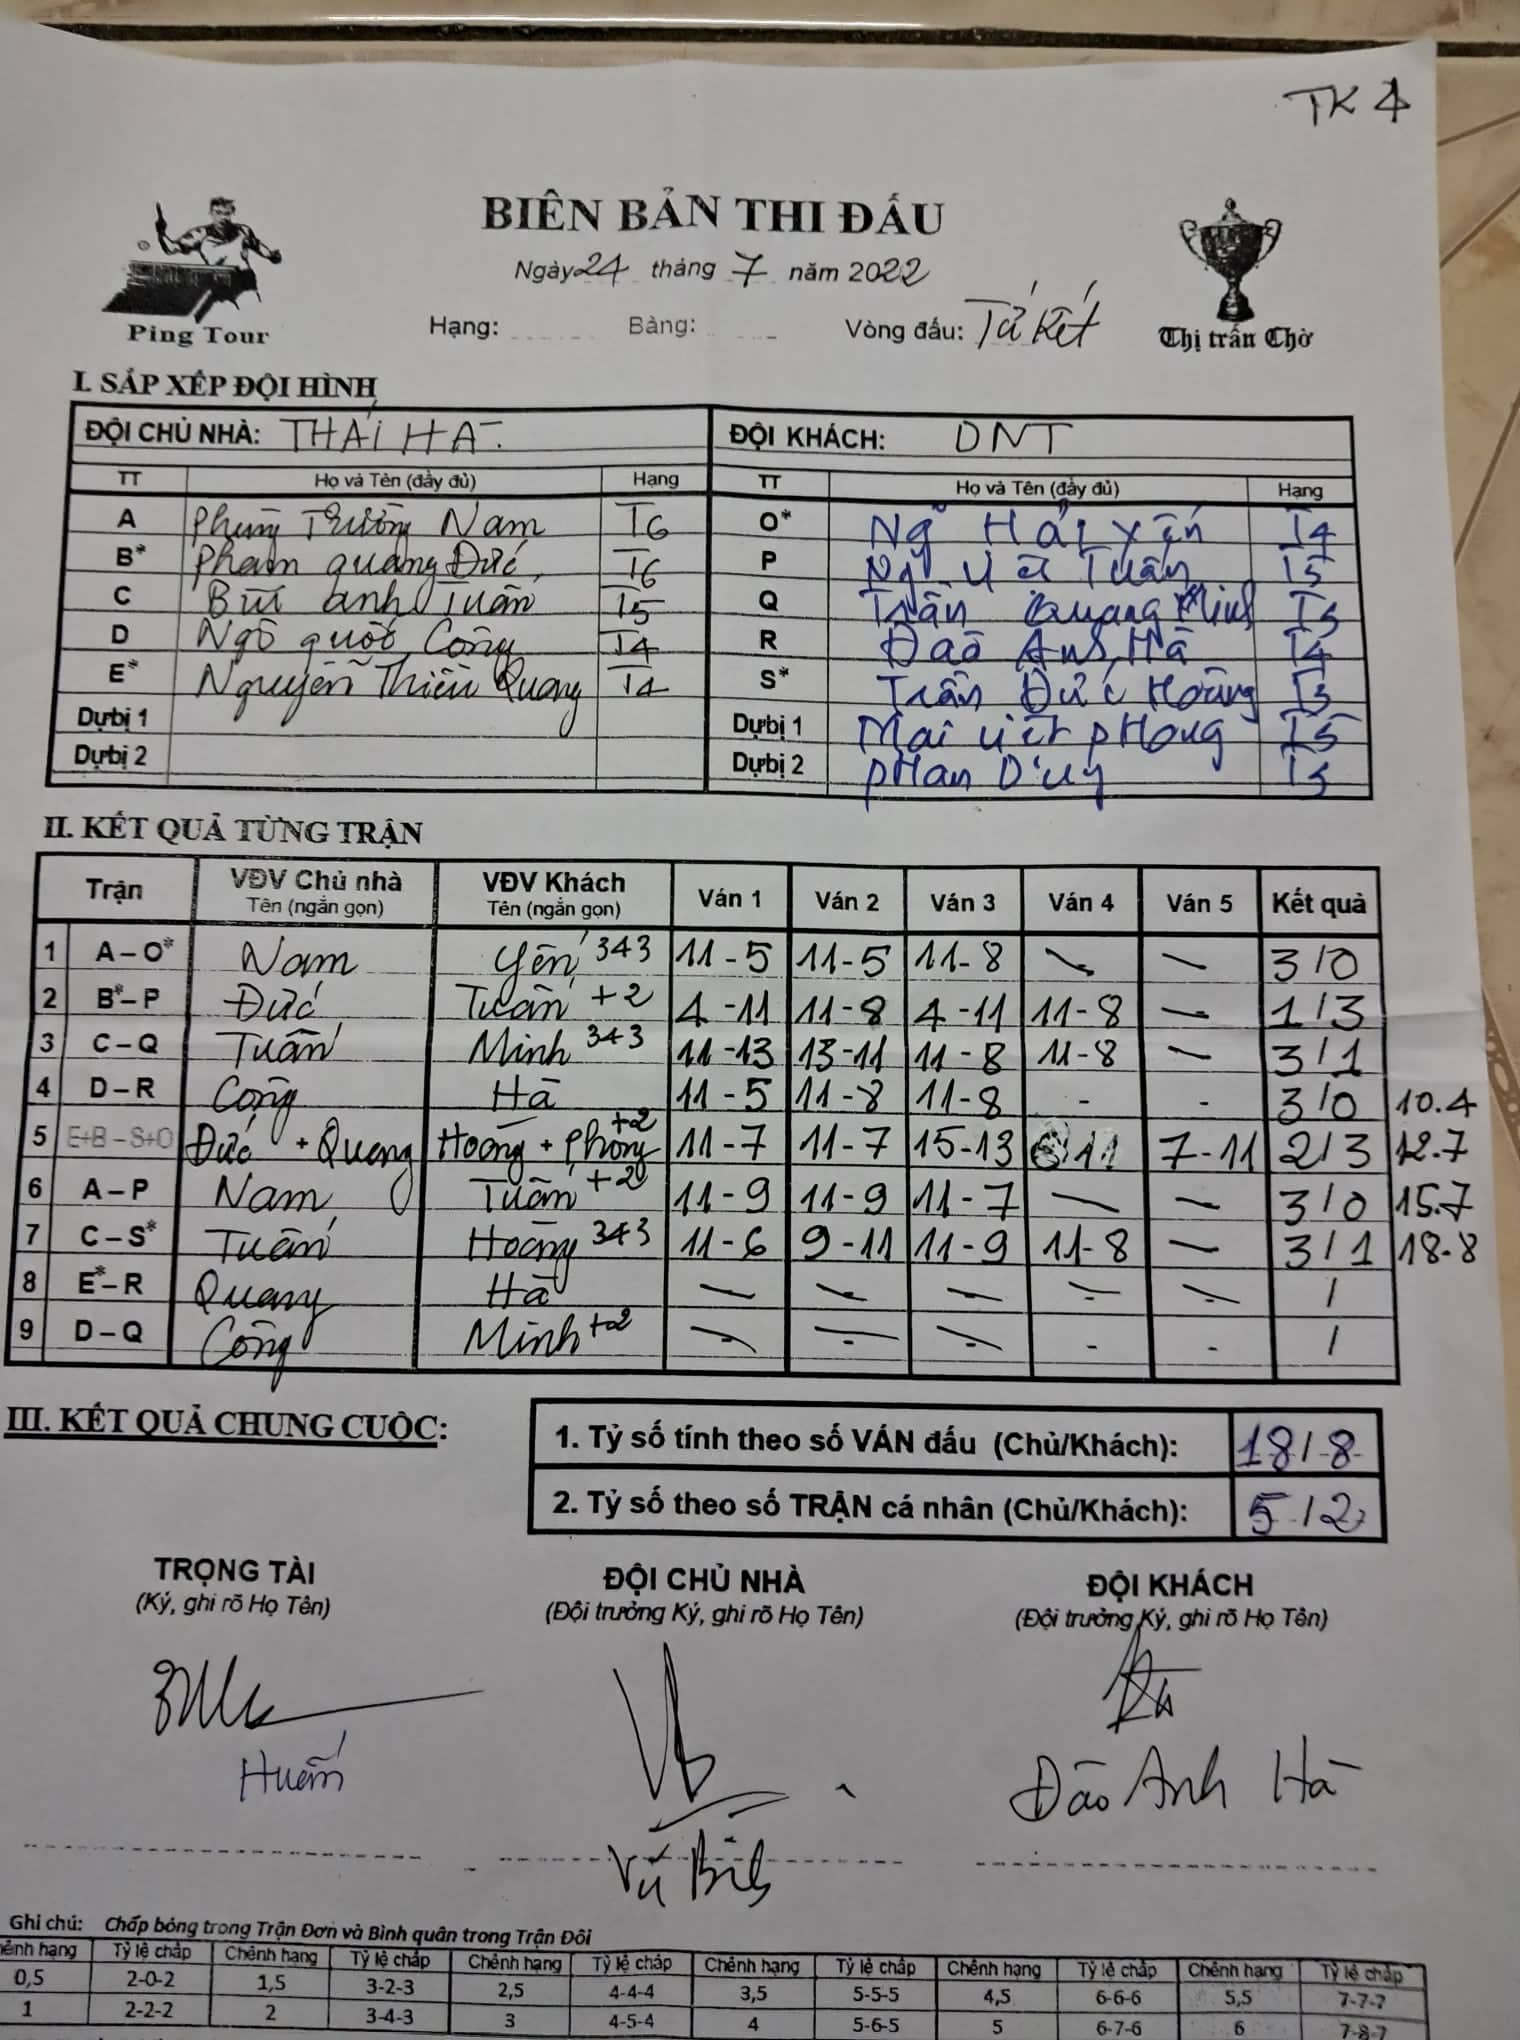 TK 4
BIÊN BẢN THI ĐẤU
Ngày 24 tháng 7 năm 2022
Hạng: Bảng: Vòng đấu: Tứ Kết
Ping Tour
Thị trấn Chờ
I. SẮP XẾP ĐỘI HÌNH
ĐỘI CHỦ NHÀ: THÁI HÀ. ĐỘI KHÁCH: DNT
TT Họ và Tên (đầy đủ) Hạng TT Họ và Tên (đầy đủ) Hạng
A Phùng Trường Nam T6 O* Ng Hải Yến T4
B* Phạm quang Đức T6 P Ng Tuấn T5
C Bùi anh Tuấn T5 Q Trần Quang Minh
D Ngô quốc Công T4 R Đào Anh Hà T4
E* Nguyễn Thiều Quang T4 S* Trần Đức Hoàng
Dự bị 1 Mai Việt pHong T5
Dự bị 2 pHan Duy
II. KẾT QUẢ TỪNG TRẬN
Trận VĐV Chủ nhà VĐV Khách Ván 1 Ván 2 Ván 3 Ván 4 Ván 5 Kết quả
Tên (ngắn gọn) Tên (ngắn gọn)
1 A – O* Nam Yến 343 11 - 5 11 - 5 11 - 8 — — 3 / 0
2 B* – P Đức Tuấn +2 4 - 11 11 - 8 4 - 11 11 - 8 — 1 / 3
3 C – Q Tuấn Minh 343 11 - 13 13 - 11 11 - 8 11 - 8 — 3 / 1
4 D – R Công Hà 11 - 5 11 - 8 11 - 8 - - 3 / 0 10.4
5 E+B – S+O Đức + Quang Hoàng + Phong +2 11 - 7 11 - 7 15 - 13 11 7 - 11 2 / 3 12.7
6 A – P Nam Tuấn +2 11 - 9 11 - 9 11 - 7 — — 3 / 0 15.7
7 C – S* Tuấn Hoàng 343 11 - 6 9 - 11 11 - 9 11 - 8 — 3 / 1 18-8
8 E* – R Quang Hà — — — — — /
9 D – Q Công Minh +2 — — — - - /
III. KẾT QUẢ CHUNG CUỘC:
1. Tỷ số tính theo số VÁN đấu (Chủ/Khách): 18 / 8
2. Tỷ số theo số TRẬN cá nhân (Chủ/Khách): 5 / 2
TRỌNG TÀI ĐỘI CHỦ NHÀ ĐỘI KHÁCH
(Ký, ghi rõ Họ Tên) (Đội trưởng Ký, ghi rõ Họ Tên) (Đội trưởng Ký, ghi rõ Họ Tên)
Huấn
Đào Anh Hà
Ghi chú: Chấp bóng trong Trận Đơn và Bình quân trong Trận Đôi
hênh hạng Tỷ lệ chấp Chênh hạng Tỷ lệ chấp Chênh hạng Tỷ lệ chấp Chênh hạng Tỷ lệ chấp Chênh hạng Tỷ lệ chấp Chênh hạng Tỷ lệ chấp
0,5 2-0-2 1,5 3-2-3 2,5 4-4-4 3,5 5-5-5 4,5 6-6-6 5,5 7-7-7
1 2-2-2 2 3-4-3 3 4-5-4 4 5-6-5 5 6-7-6 6 7-8-7